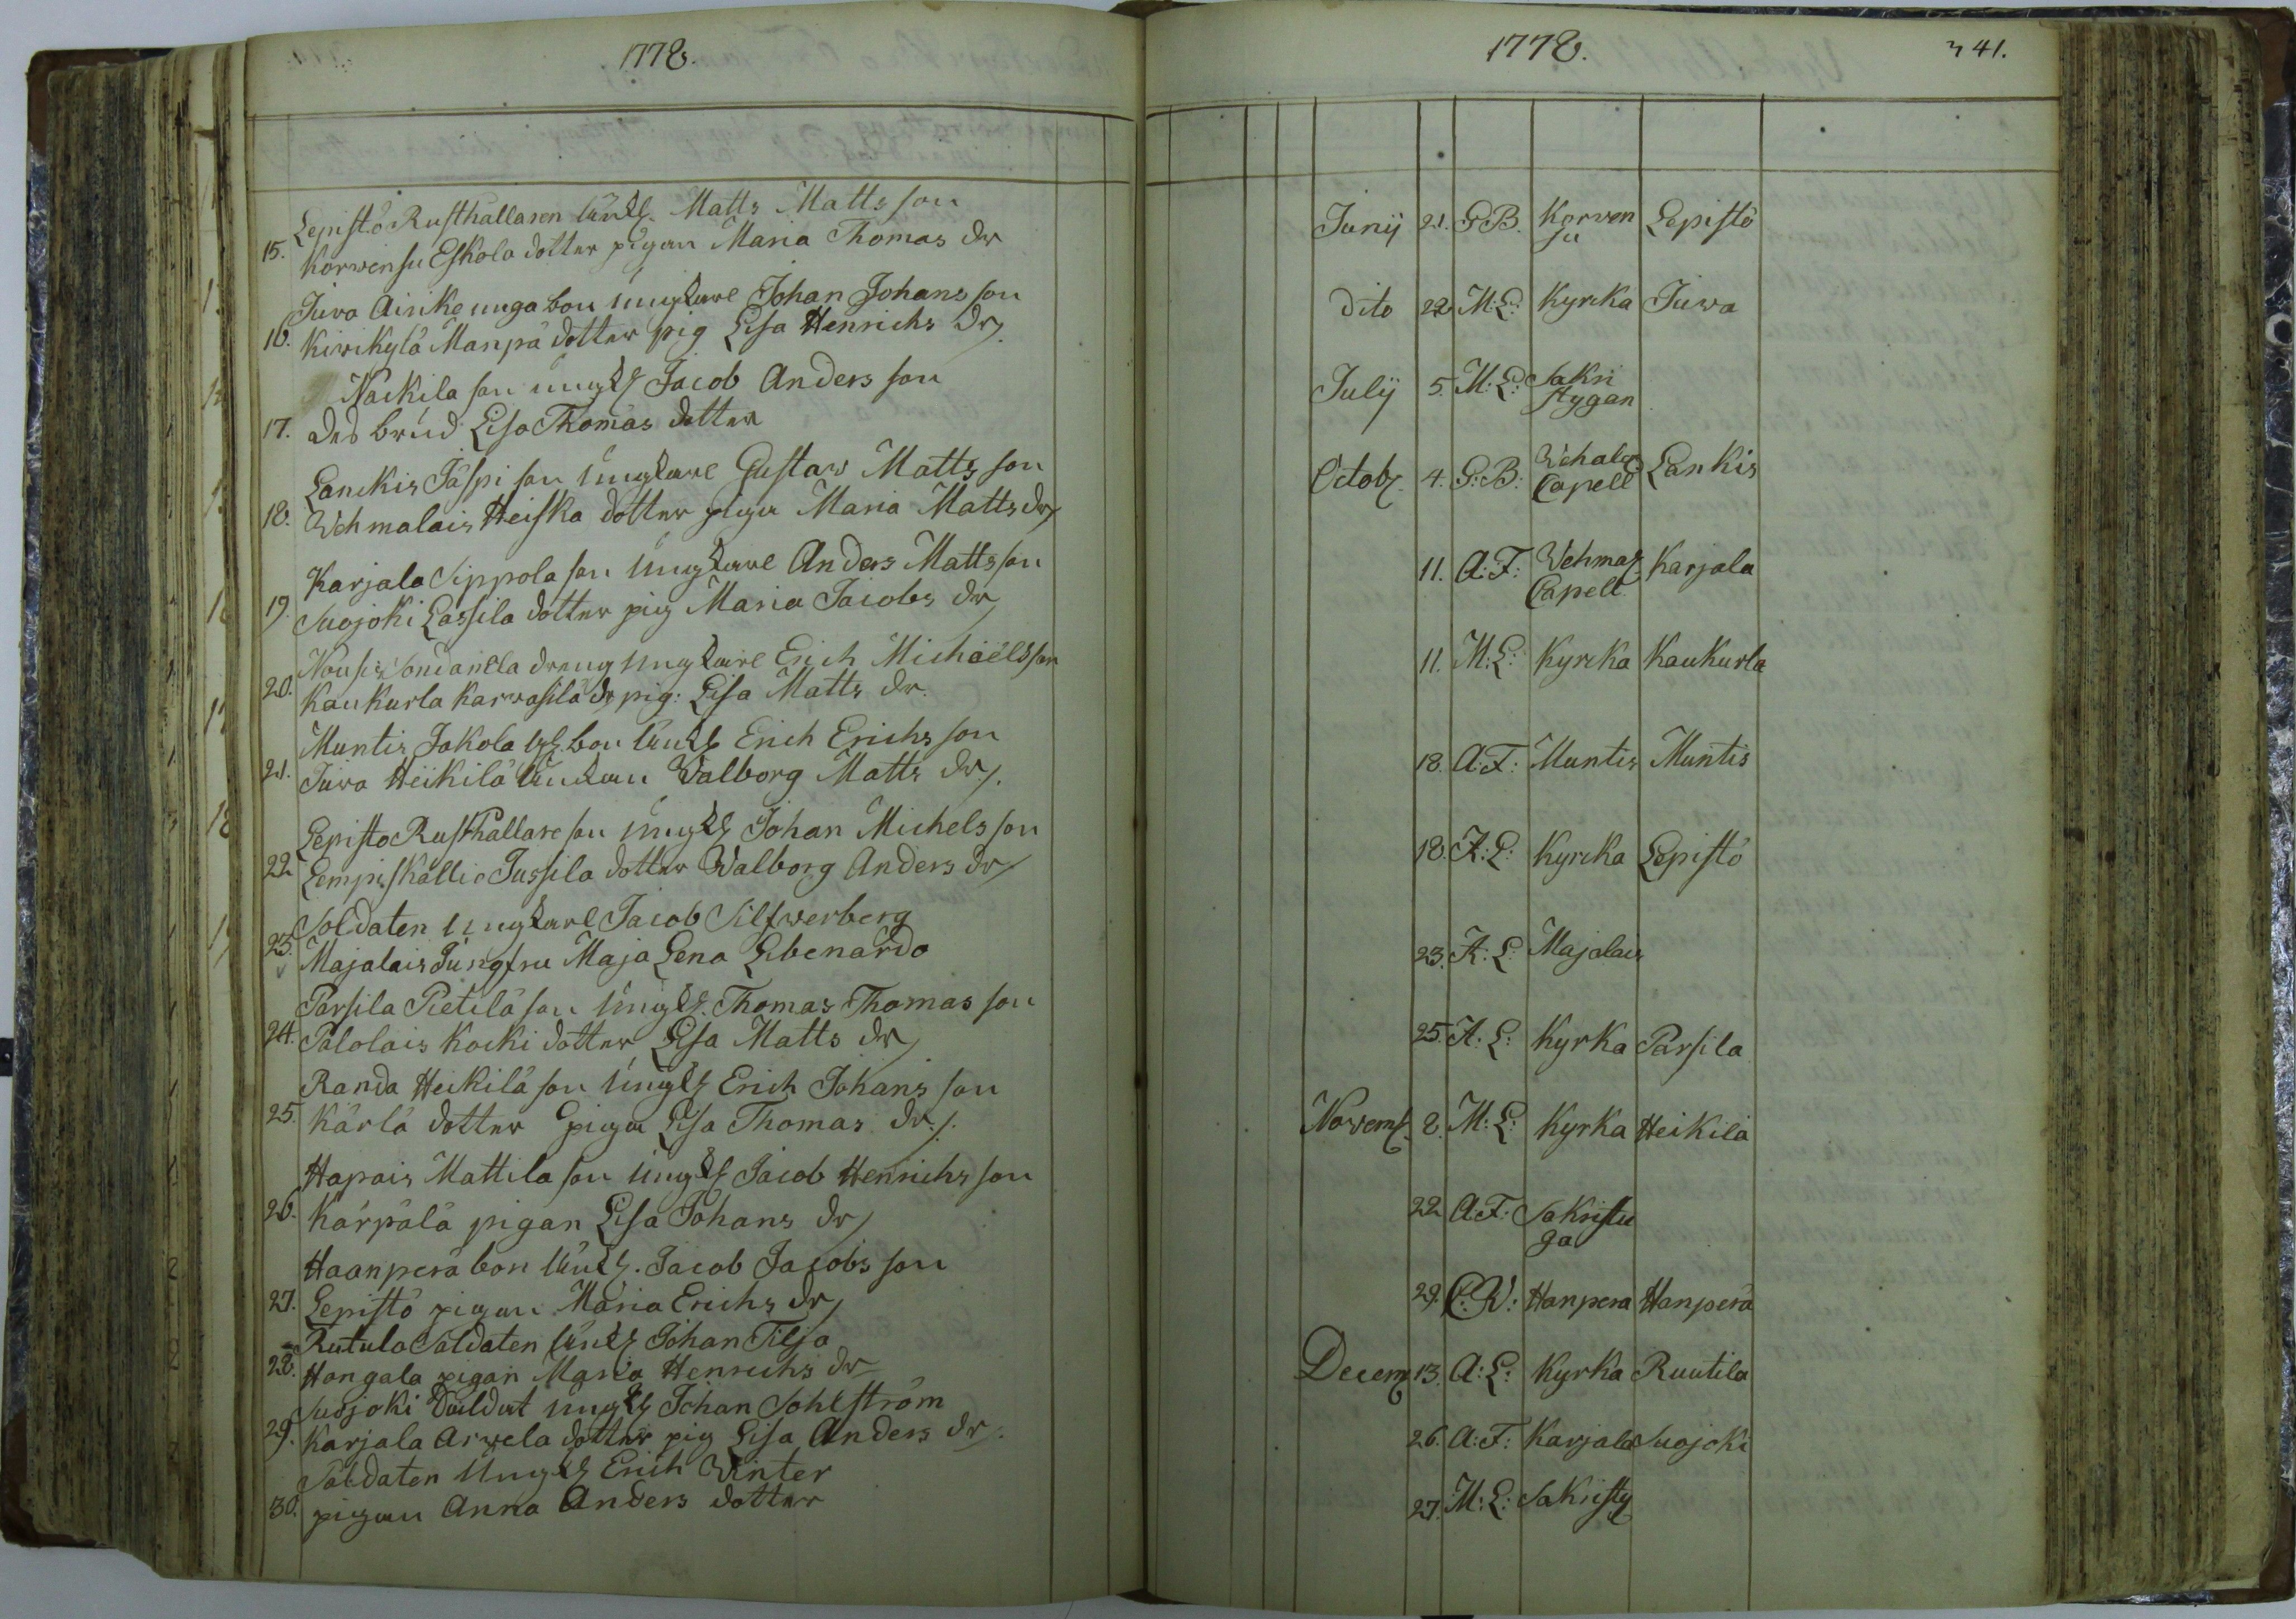 1778.
15. Lepistö Rusthållaren Änkl. Matts Matts son
Korwensu Eskola dotter pigan Maria Thomas dr
16. Juva Airike unga bon ungkarl Johan Johans son
Kirikylä Manpä dotter pig Lisa Henrichs dr
17. Nackila son ungk Jacob Anders son
des brud Lisa Thomas dotter
18. Lanckis Jäspi son ungkarl Gustaw Matts son
Wehmalais Heiska dotter piga Maria Matts dr
19. Karjala Sippola son ungkarl Anders Matts son
Suojoki Lassila dotter pig Maria Jacobs dr
20. Nousis dräng ungkarl Erich Michaëls son
Kaukurla Karwasila dr pig: Lisa Matts dr.
21. Muntis Jakola bon Änkl Erich Erichs son
Juva Heikilä Änkan Walborg Matts dr
22. Lepistö Rusthållare son ungk Johan Michels son
Lempiskallio Jussila dotter Walborg Anders dr
23. Soldaten ungkarl Jacob Silfwerberg
Majalais Jungfru Maja Lena Libenardo
24. Parsila Pietilä son ungk. Thomas Thomas son
Palolais Kocki dotter Lisa Matts dr
25. Randa Heikilä son ungk Erich Johans son
Kärlä dotter piga Lisa Thomas dr
26. Hapais Mattila son ungk Jacob Henrichs son
Kärpälä pigan Lisa Johans dr
27. Haanperä bon Änkl. Jacob Jacobs son
Lepistö pigan Maria Erichs dr
28. Rutula Soldaten Änkl Johan Tilja
Hongala pigan Maria Henrichs dr
29. Suojoki Soldat ungk Johan Sohlström
Karjala Arvela dotter pig Lisa Anders dr
30. Soldaten Ungk Erich Winter
pigan Anna Anders dotter
1778. 341.
Junij 21. G.B. Korwen su Lepistö
dito 22 M:L: Kyrcka Juwa
Julij 5. M:L: Sakri stygan
Octob. 4. G:B: Wehalais Capell Lankis
11. A:F: Wehmas Capell Karjala
11. M:L: Kyrcka Kaukurla
18. A:F: Muntis Muntis
18. A:L: Kyrcka Lepistö
23. A:L: Majalais
25. A:L: Kyrka Parsila
Novemb. 8. M:L: Kyrka Heikilä
22 A:F: Sakristi ga
29. C:W: Hanpera Hanperä
Decem 13. A:L: Kyrka Ruutila
26. A:F: Karjala Suojoki
27. M:L: Sakristy